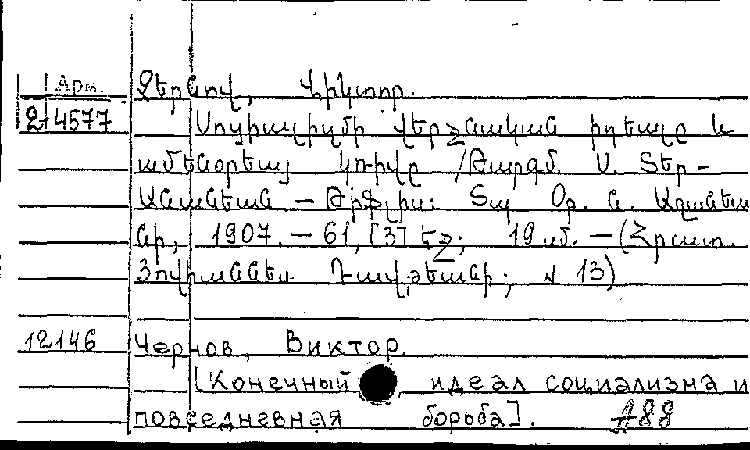 Арм. Չերնով, Վիկտոր.
2/4577 Սոցիալիզմի վերջնական իդեալը և
ամենօրեայ կռիվը /Թարգմ. Մ. Տեր-
Անանեան – Թիֆլիս: Տպ. Օր. Ն. Աղանեա-
նի, 1907. – 61, [3] եջ; 19 սմ. – (Հրատ.
Յովհաննես Դավթեանի; № 13)
12146 Чернов, Виктор.
[Конечный идеал социализма и
повседневная борьба]. А88